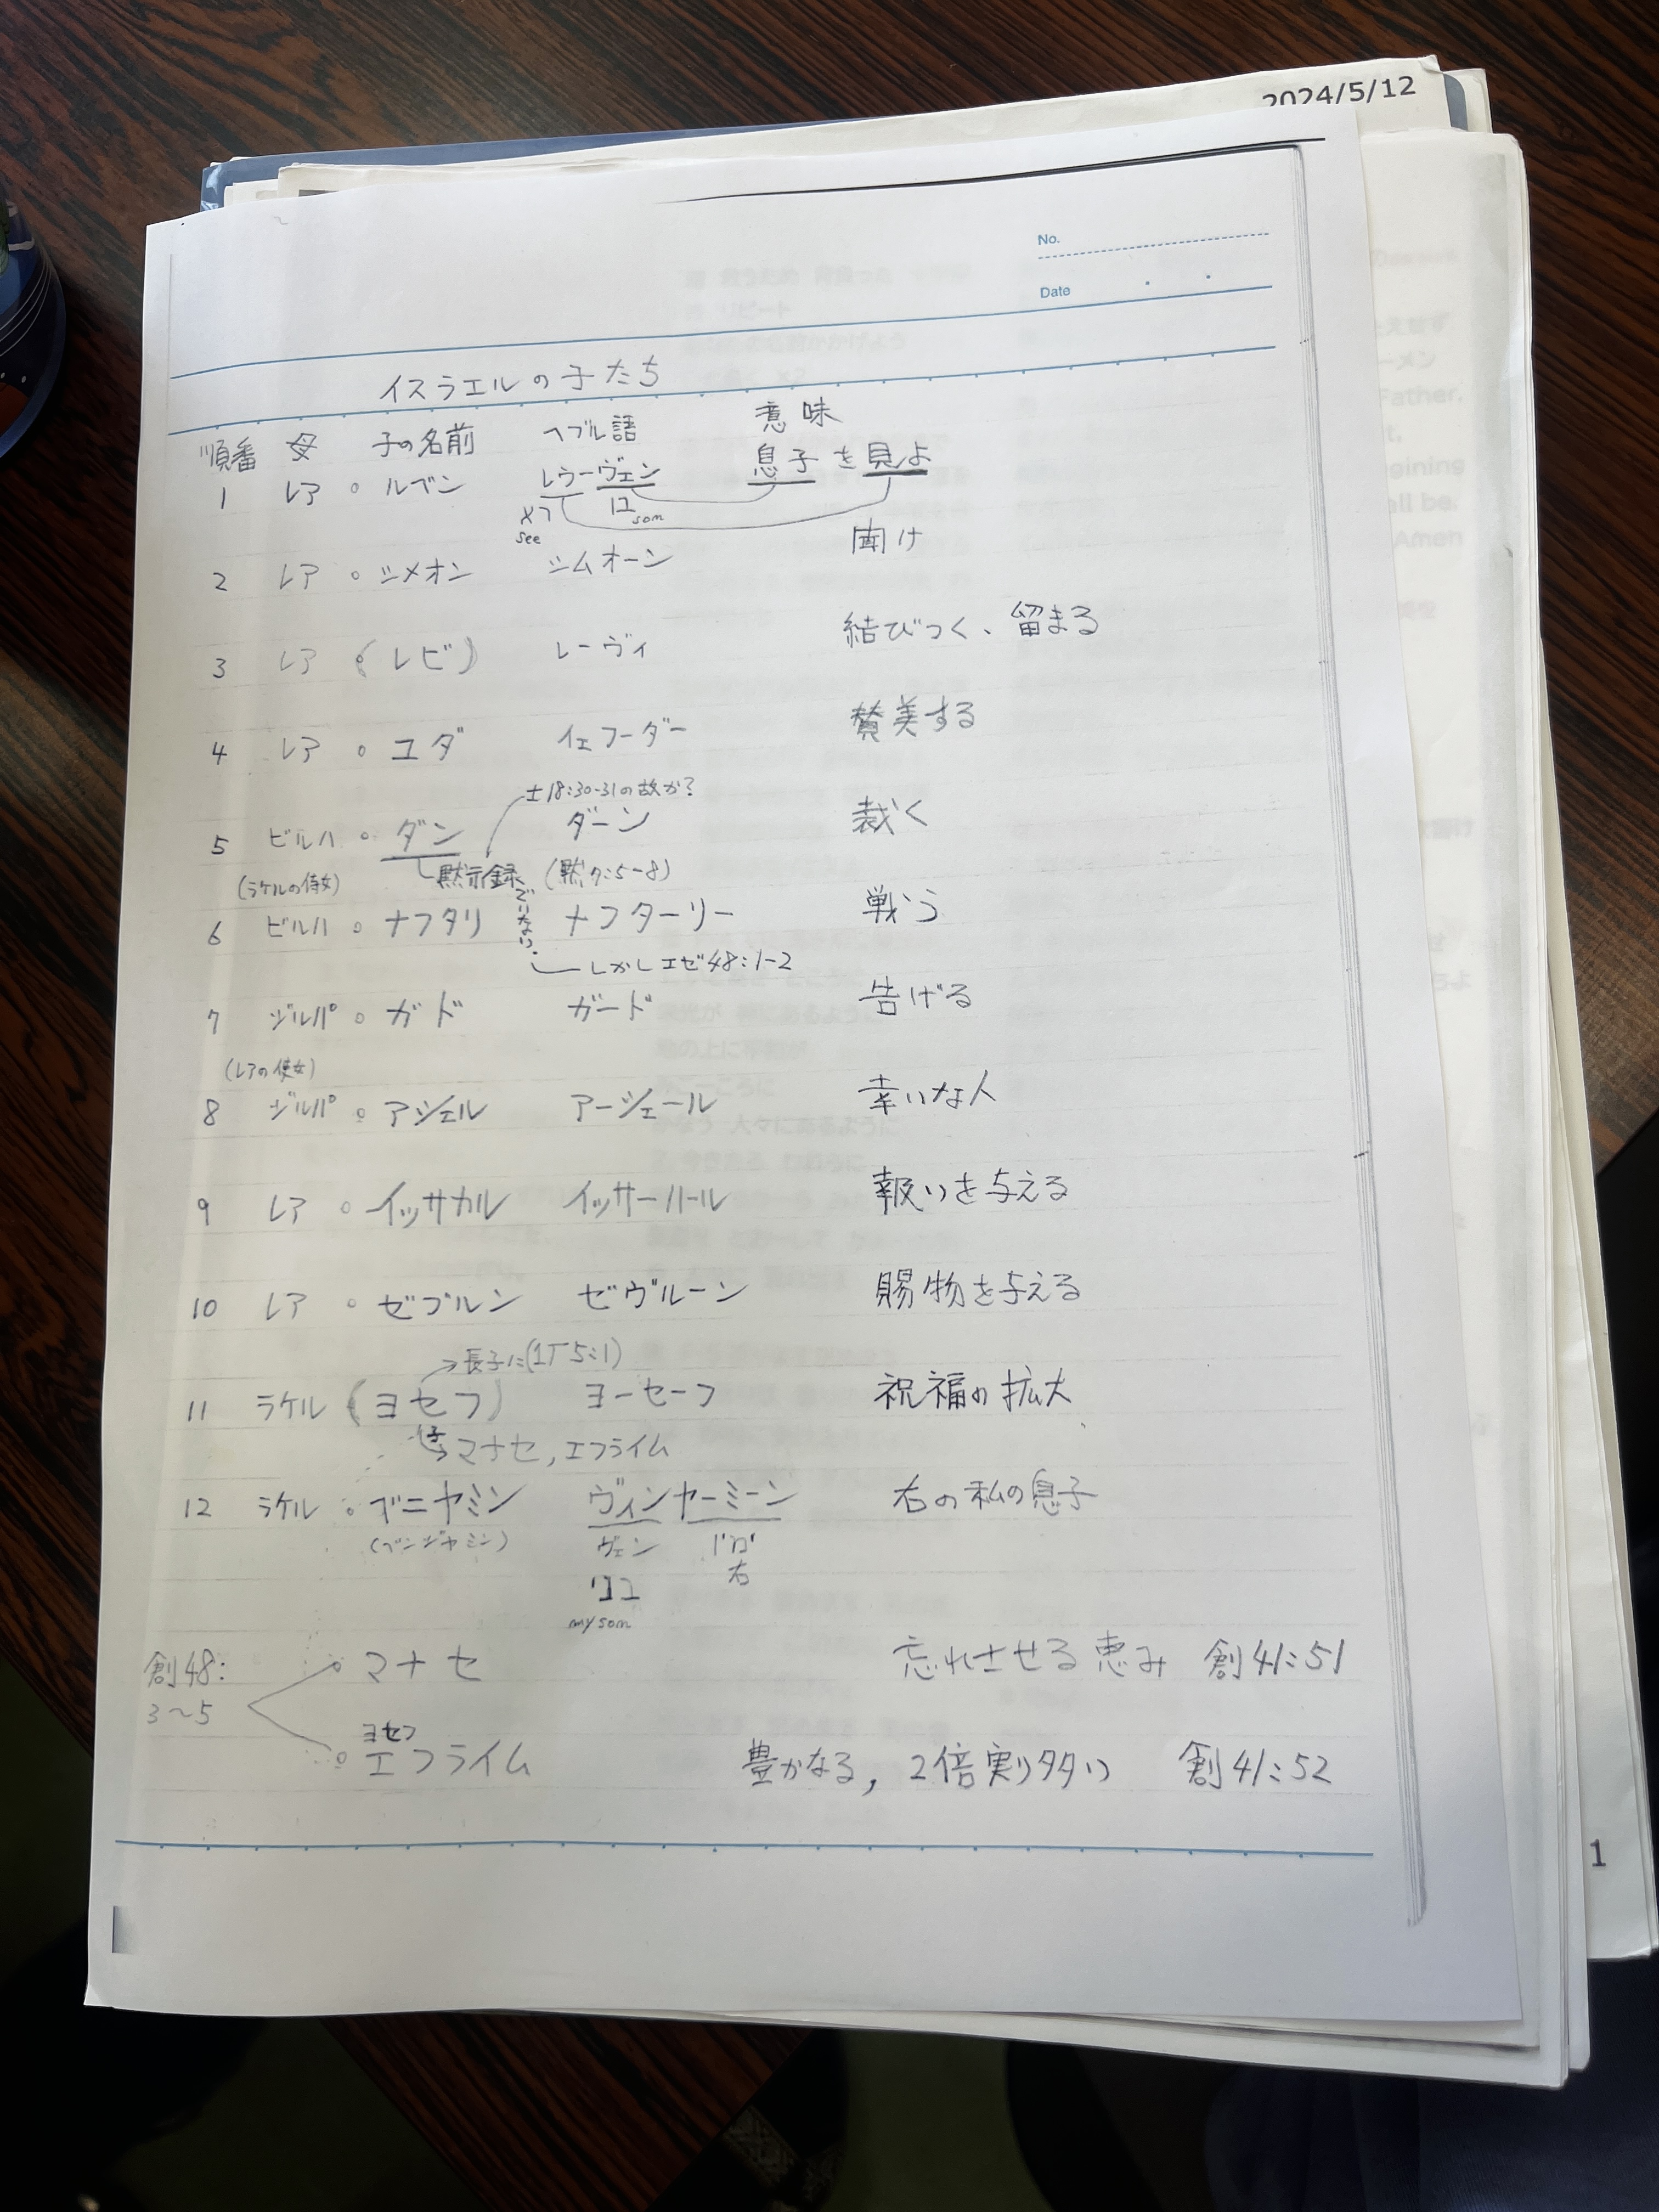 2024/5/12
No.
Date
イスラエルの子たち
順番 母 子の名前 ヘブル語 意味
1 レア ○ ルベン レウーヴェン 息子を見よ
see son
2 レア ○ シメオン シムオーン 聞け
3 レア (○ レビ) レーヴィ 結びつく、留まる
4 レア ○ ユダ イェフーダー 賛美する
士18:30-31の故か?
5 ビルハ ○ ダン ダーン 裁く
(ラケルの侍女) 黙示録 (黙7:5-8)
でいない.
6 ビルハ ○ ナフタリ ナフターリー 戦う
しかしエゼ48:1-2
7 ジルパ ○ ガド ガード 告げる
(レアの侍女)
8 ジルパ ○ アシェル アーシェール 幸いな人
9 レア ○ イッサカル イッサーハール 報いを与える
10 レア ○ ゼブルン ゼヴルーン 賜物を与える
→長子に(1歴5:1)
11 ラケル (ヨセフ) ヨーセーフ 祝福の拡大
子→マナセ, エフライム
12 ラケル ○ ベニヤミン ヴィンヤーミーン 右の私の息子
(ベンジャミン) ヴェン
右
my son
創48:
3~5
○ マナセ 忘れさせる恵み 創41:51
ヨセフ
○ エフライム 豊かなる, 2倍実り多い 創41:52
1